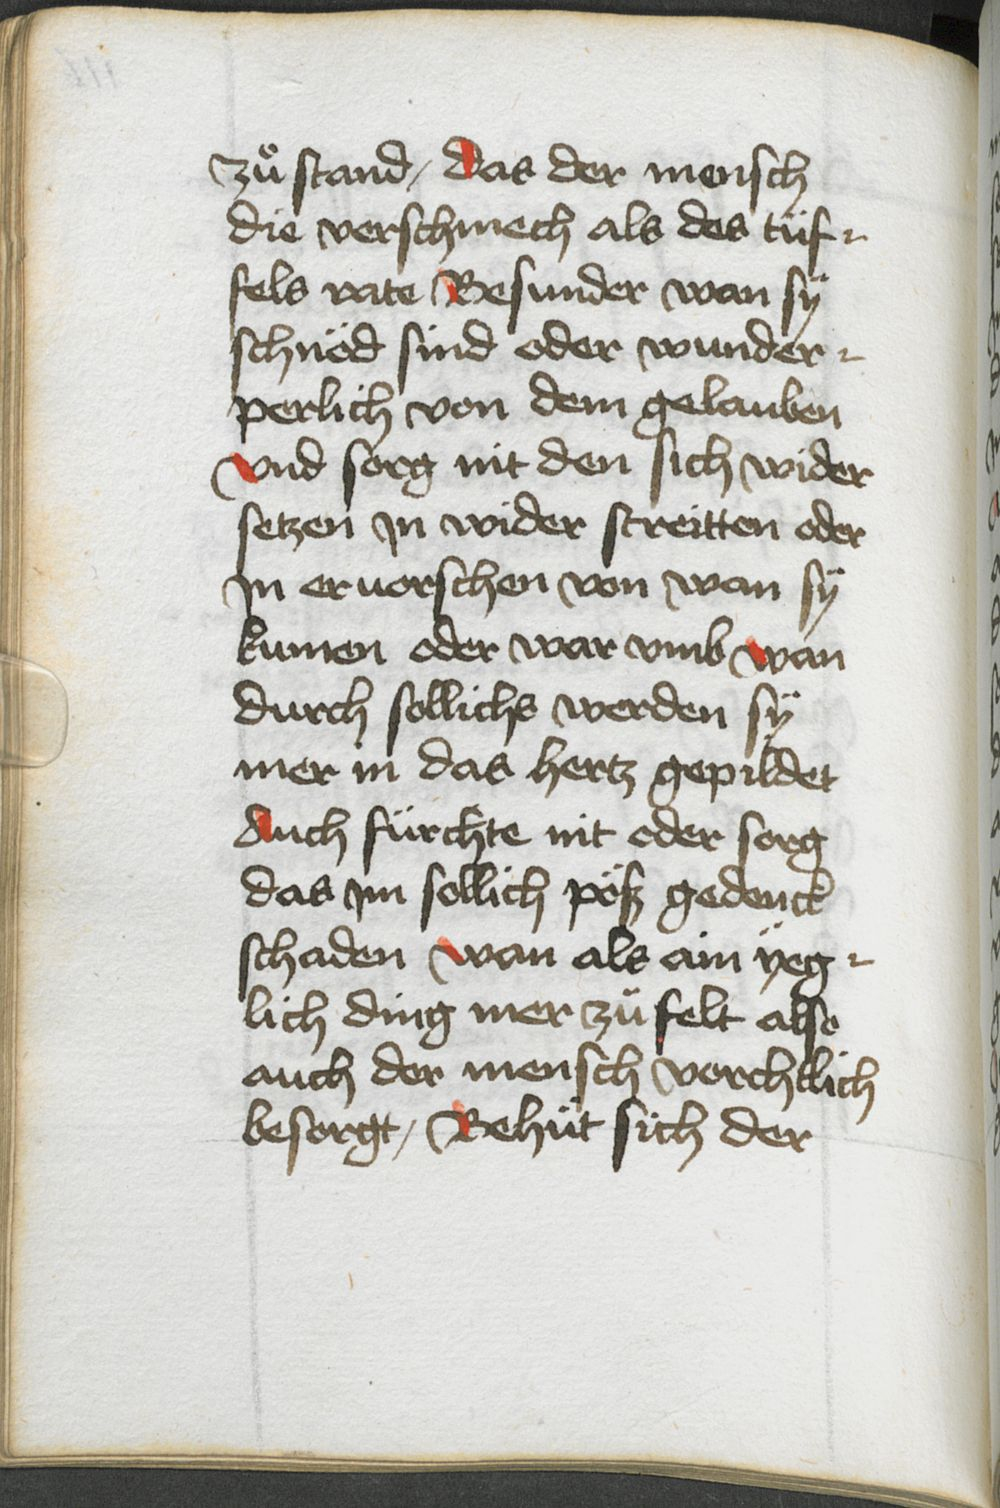 zů stand / Das der mensch
die verschmech als des tüf-
fels rate Besunder wan sÿ
schnöd sind oder wunder-
perlich von dem gelauben
Vnd sorg nit den sich wider
setzen jn wider streitten oder
jn eruorschen von wan sÿ
kumen oder war vmb wan
durch sollichs werden sÿ
mer in das hertz gepildet
Auch fürchte nit oder sorg
das jm sollich pöß gedenck
schaden wan als ain ÿeg-
lich ding mer zů felt also
auch der mensch vorchtlich
besorgt / Behüt sich der